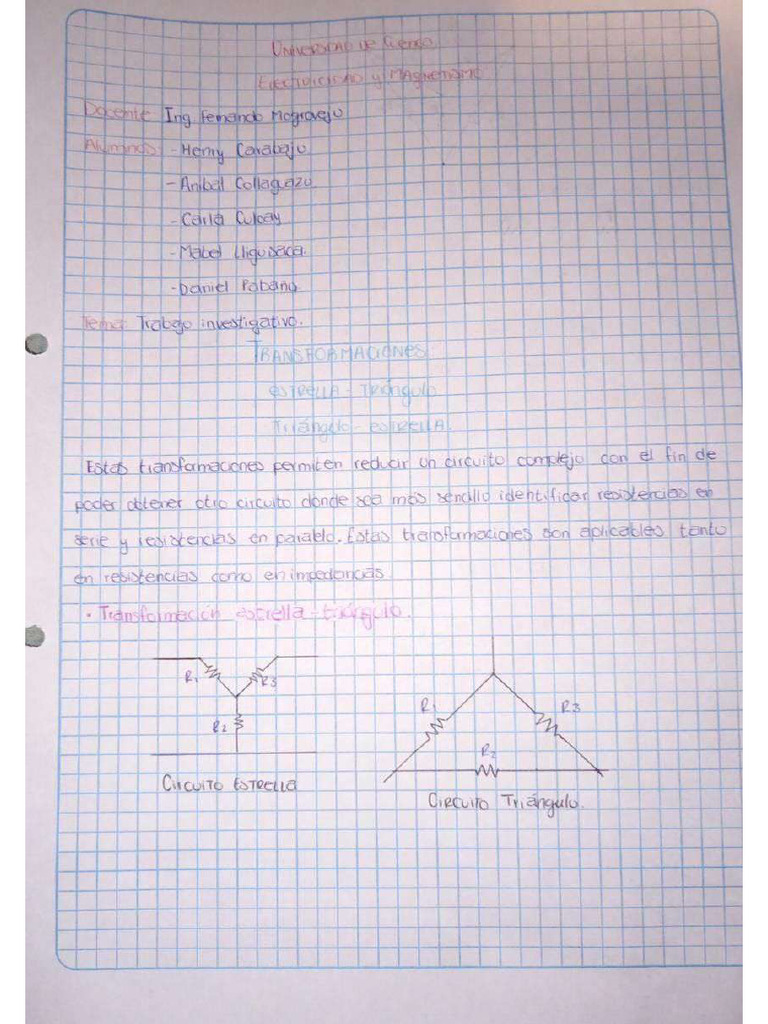 Universidad de Cuenca
Electricidad y Magnetismo
Docente: Ing Fernando Mogrovejo
Alumnos: - Henry Carabajo
- Anibal Collaguazo
- Carla Culcay
- Mabel Lliguisaca.
- Daniel Pabaña
Tema: Trabajo investigativo.
TRANSFORMACIONES
ESTRELLA - Triángulo
Triángulo - ESTRELLA.
Estas transformaciones permiten reducir un circuito complejo con el fin de
poder obtener otro circuito donde sea más sencillo identificar resistencias en
serie y resistencias en paralelo. Estas transformaciones son aplicables tanto
en resistencias como en impedancias
• Transformación estrella - triángulo.
R1
R3
R2
R1
R3
R2
Circuito Estrella
Circuito Triángulo.